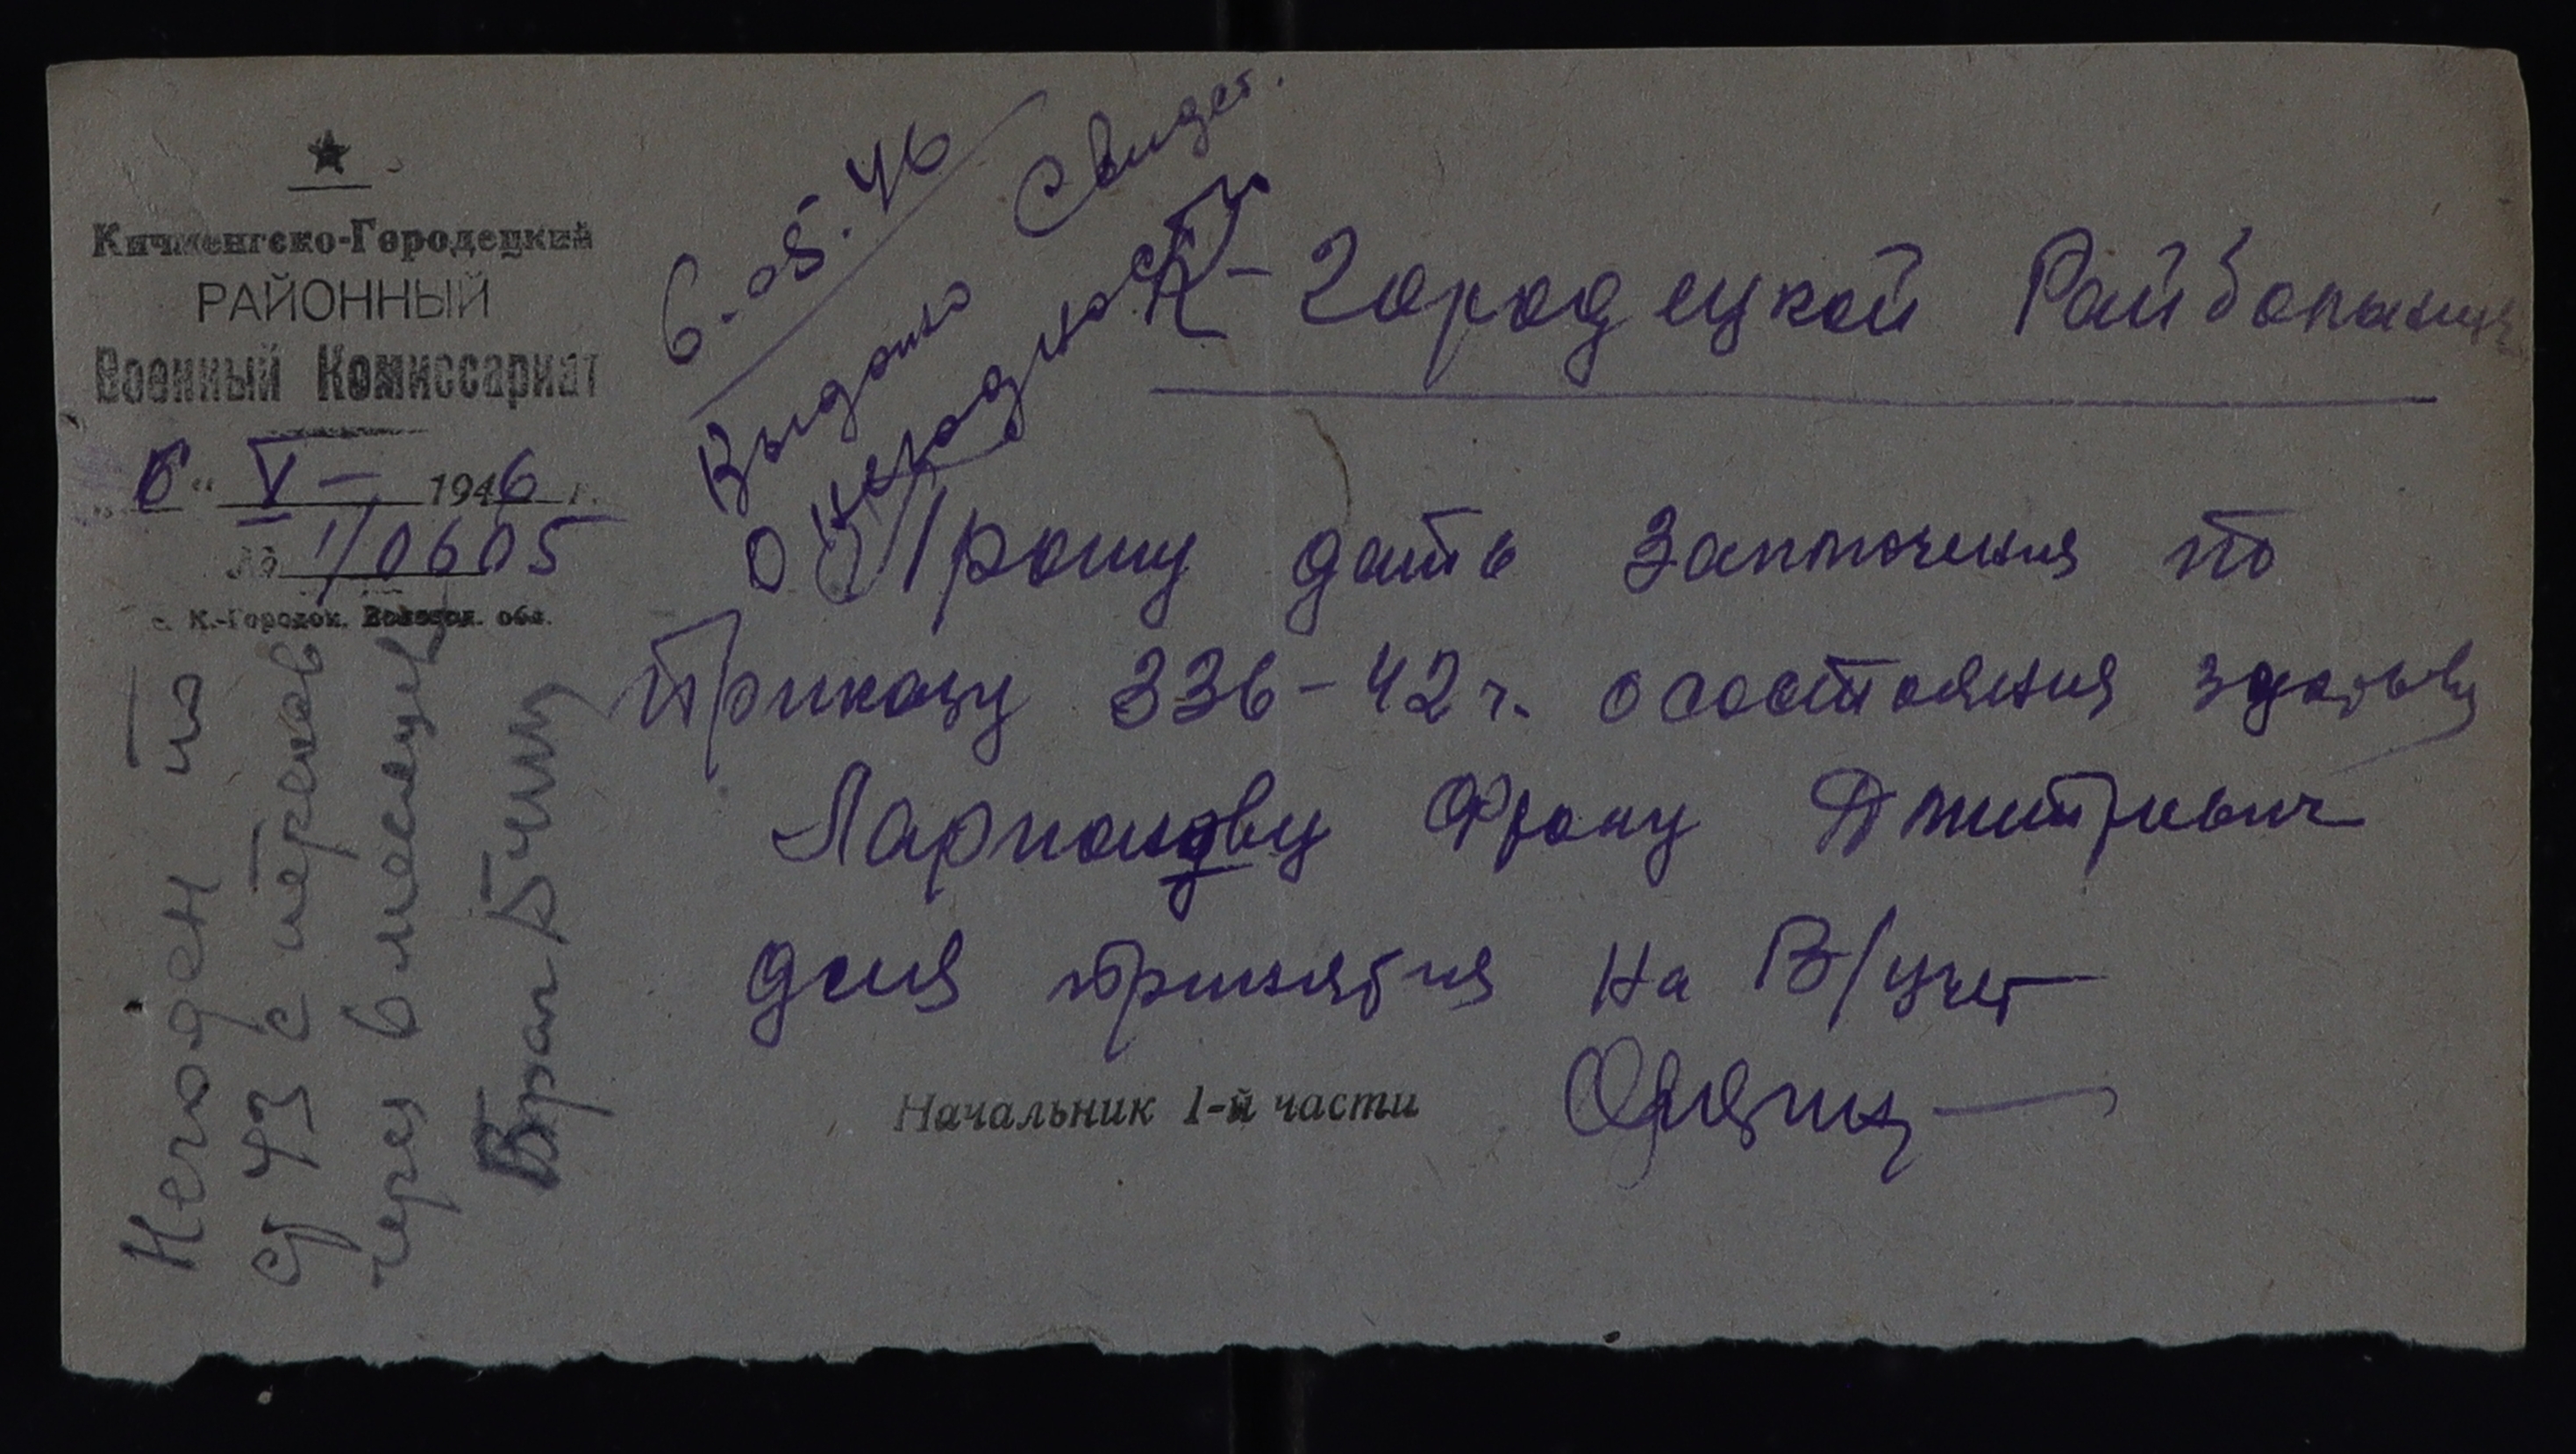 Кичменгско-Городецкий
РАЙОННЫЙ
Военный Комиссариат
"6" V - 1946 г.
№ 1/0605
с. К.-Городок, Вологод. обл.
6.05.46
Выдано свидет.
о негодности
К-Городецкой Райбольниц
Прошу дать заключения по
приказу 336-42 г. о состояния здоровья
Ларионову Фрону Дмитриевич
для принятия на В/учет
Начальник 1-й части
Негоден по
ст 43 с переосв
через 6 месяцев
Врач